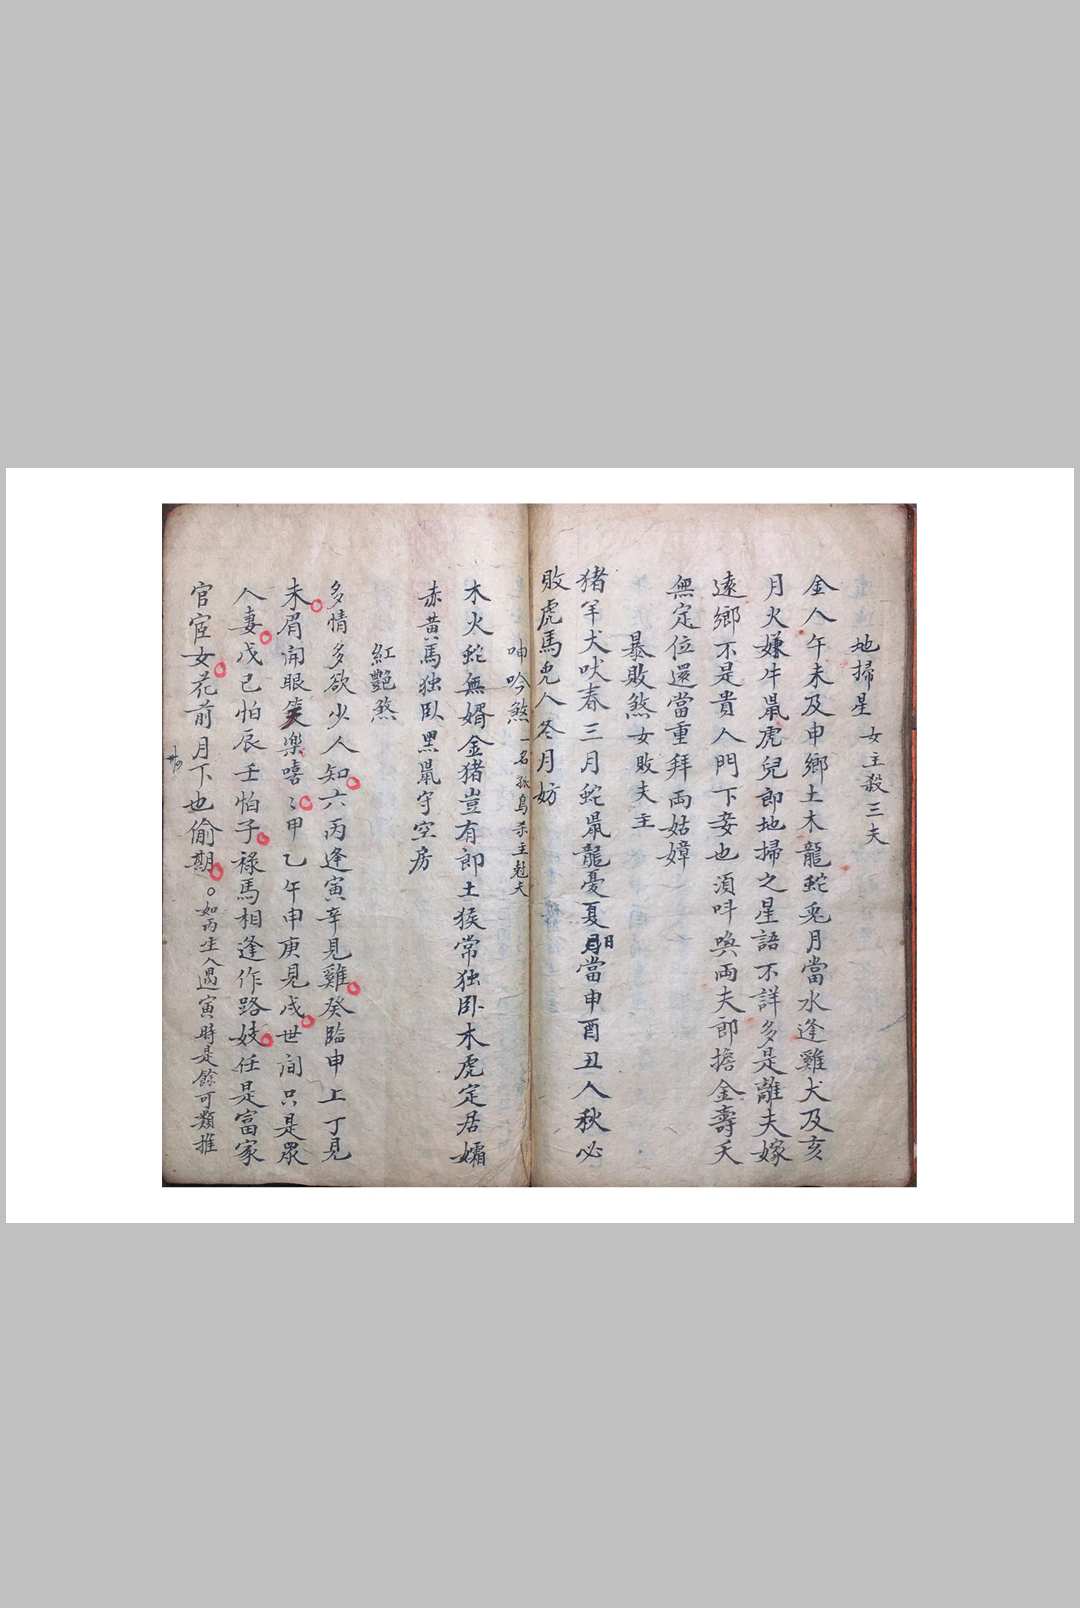 地掃星 女主殺三夫
金人午未及申鄉土木龍蛇兎月當水逢雞犬及亥
月火嫌牛鼠虎兒即地掃之星語不詳多是離夫嫁
遠鄉不是貴人門下妾也須呌喚両夫郎擔金壽夭
無定位還當重拜両姑嫜
暴敗煞女敗夫主
猪羊犬吠春三月蛇鼠龍憂夏日當申酉丑人秋必
敗虎馬兎人冬月妨
呻吟煞 一名孤鸟杀主尅夫
木火蛇無婿金猪豈有郎土猴常独卧木虎定居孀
赤黄馬独卧黑鼠守空房
紅艷煞
多情多欲少人知六丙逢寅辛見雞癸臨申上丁見
未眉開眼笑樂嘻々甲乙午申庚見戌世间只是衆
人妻戊己怕辰壬怕子祿馬相逢作路妓任是富家
官宦女花前月下也偷期。如丙生人遇寅時是餘可類推